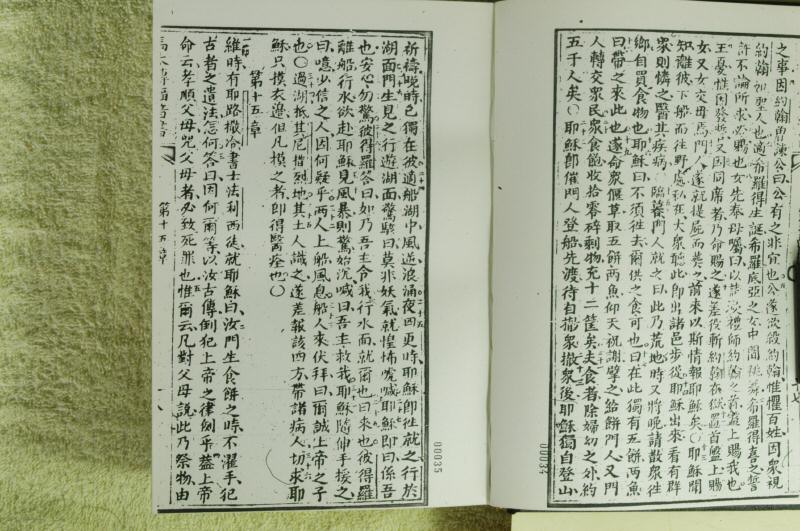 之事因約翰曽諫公曰公有之非宜也公遂欲殺約翰惟懼百姓因衆視
約翰如聖人也適希羅得生誕希羅底亞之女中間跳舞希羅得喜之誓
許不論所求必賜也女先奉母囑曰以
約翰之首盤上賜我也
王憂惟因發誓又因同席者乃命賜之遂差役斬約翰
首盤上賜
女又女交母焉門人遂就提屍而葬之前來以斯情報耶穌矣〇耶穌聞
知離彼下船而往野處私在大衆聽此即出諸邑步從耶穌出來看有群
衆則憐之醫其疾病臨暮門人就之曰此乃荒地時又將晚請散衆往
鄉自買食物也耶穌曰不須往去爾供之食可也曰在此獨有五餅兩魚
曰帶之來此也遂命衆偃草取五餅兩魚仰天祝謝擘之餅門人又門
人轉交衆民衆食飽收拾零碎剩物充十二筐矣夫食者除婦幼之外約
五千人矣〇耶穌即催門人登船先渡待自撤衆撤衆後耶穌獨自登山
00034
祈禱晚時已獨在彼適船湖中風逆浪涌夜四更時耶穌即往就之行於
湖面門生見之行遊湖面驚駭曰莫非妖氣就惶怖喊耶穌即曰係吾
也安心勿驚彼得羅答曰如乃吾主令我行水而就爾也曰來也彼得羅
離船行水欲赴耶穌見風暴則驚始沉喊曰吾主救我耶穌隨伸手援之
曰噫少信之人因何疑乎兩人上船風息船人來伏拜曰爾誠上帝之子
也〇過湖抵其尼撒烈地其土人識之遂差報該四方帶諸病人切求耶
穌只摸衣邊但凡摸之者即得醫痊也〇
第十五章
維時有耶路撒冷書士法利西徒就耶穌曰汝門生食餅之時不濯手犯
古者之遺法怎何答曰因何爾等以汝古傳倒犯上帝之律例乎蓋上帝
命云孝順父母咒父母者必致死罪也惟爾云凡對父母說此乃祭物由
第十五章
00035